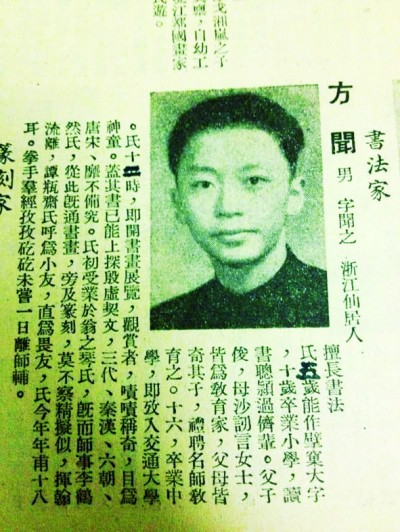 戈湘嵐之子
，自幼工
國畫家
遊。
書法家
方聞 男 字聞之 浙江仙居人
擅長書法
氏五歲能作擘窠大字
，十歲卒業小學，讀
書聰頴過儕輩。父子
俊，母沙訒言女士，
皆爲敎育家，父母皆
奇其子，禮聘名師敎
育之。十六，卒業中
學，即攷入交通大學
。氏十二時，即開書畫展覽，觀賞者，嘖嘖稱奇，目爲
神童。蓋其書已能上探殷虛契文，三代、秦漢、六朝、
唐宋、靡不備究。氏初受業於翁之琴氏，旣而師事李鶴
然氏，從此旣通書畫，旁及篆刻，莫不察精擬似，揮翰
流離，譚瓶齋氏呼爲小友，直爲畏友，氏今年年甫十八
耳。拳手羣經孜孜矻矻未嘗一日離師輔。
篆刻家